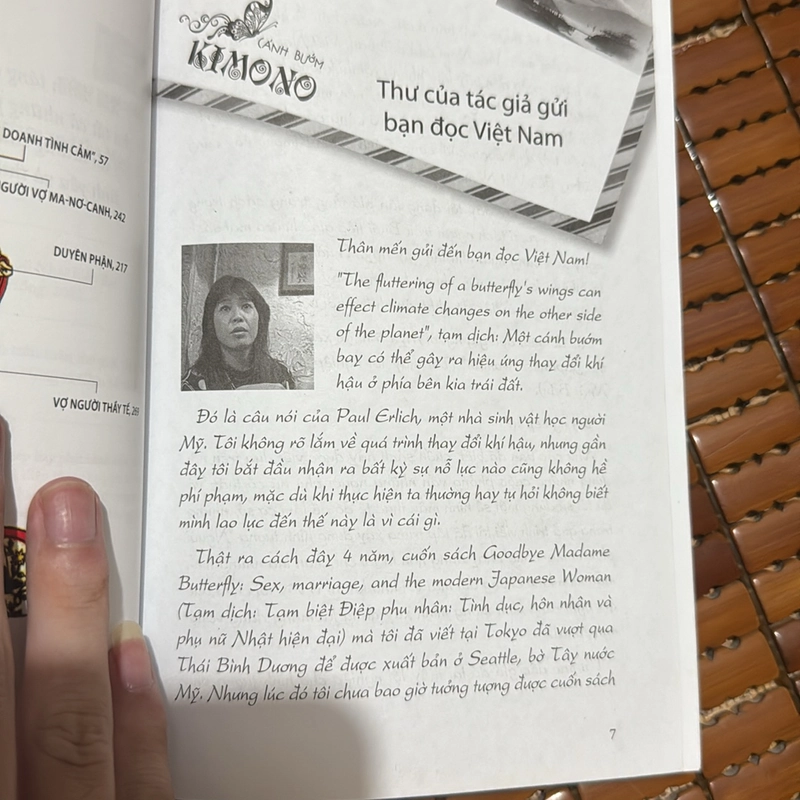 DOANH TÌNH CẢM", 57
GƯỜI VỢ MA-NƠ-CANH, 242
DUYÊN PHẬN, 217
VỢ NGƯỜI THẦY TẾ,
CÁNH BƯỚM
KIMONO
Thư của tác giả gửi
bạn đọc Việt Nam
Thân mến gửi đến bạn đọc Việt Nam!
"The fluttering of a butterfly's wings can
effect climate changes on the other side
of the planet", tạm dịch: Một cánh bướm
bay có thể gây ra hiệu ứng thay đổi khí
hậu ở phía bên kia trái đất.
Đó là câu nói của Paul Erlich, một nhà sinh vật học người
Mỹ. Tôi không rõ lắm về quá trình thay đổi khí hậu, nhưng gần
đây tôi bắt đầu nhận ra bất kỳ sự nỗ lực nào cũng không hề
phí phạm, mặc dù khi thực hiện ta thường hay tự hỏi không biết
mình lao lực đến thế này là vì cái gì.
Thật ra cách đây 4 năm, cuốn sách Goodbye Madame
Butterfly: Sex, marriage, and the modern Japanese Woman
(Tạm dịch: Tạm biệt Điệp phu nhân: Tình dục, hôn nhân và
phụ nữ Nhật hiện đại) mà tôi đã viết tại Tokyo đã vượt qua
Thái Bình Dương để được xuất bản ở Seattle, bờ Tây nước
Mỹ. Nhưng lúc đó tôi chưa bao giờ tưởng tượng được cuốn sách
7